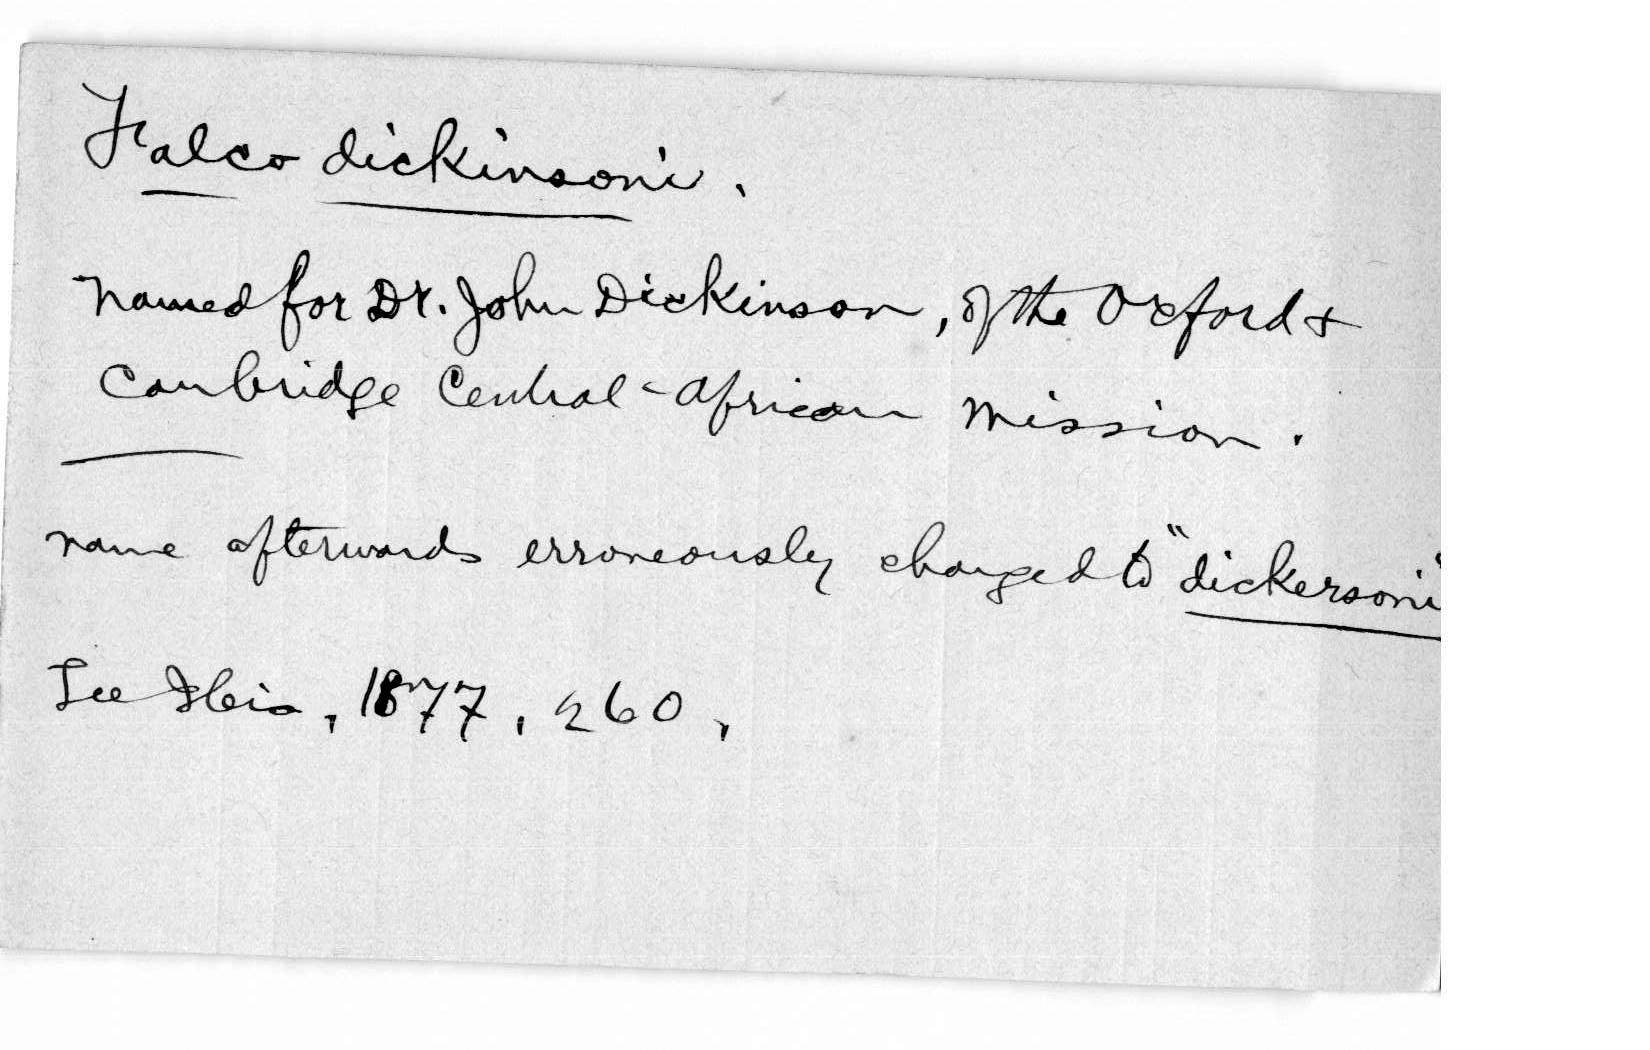 Falco dickinsoni.
Named for Dr. John Dickinson, of the Oxford &
Cambridge Central-African Mission.
name afterwards erroneously changed to "dickersoni"
See Ibis, 1877, 260,